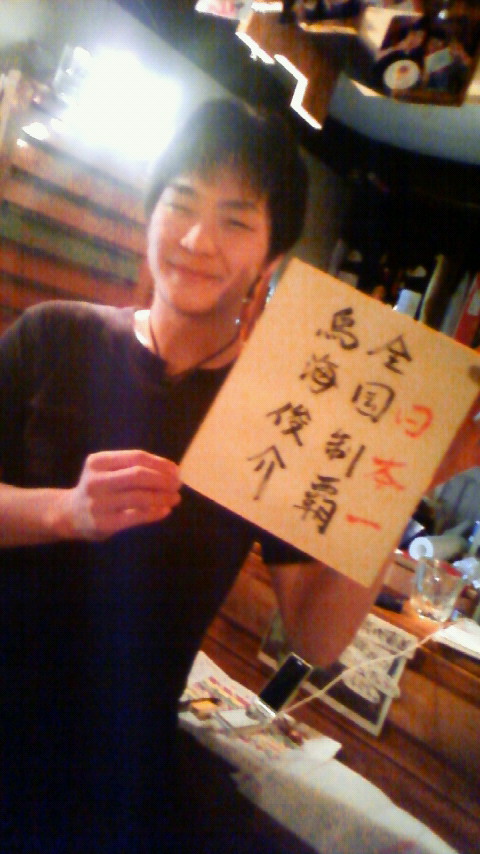 日本一
全国制覇
鳥海俊介